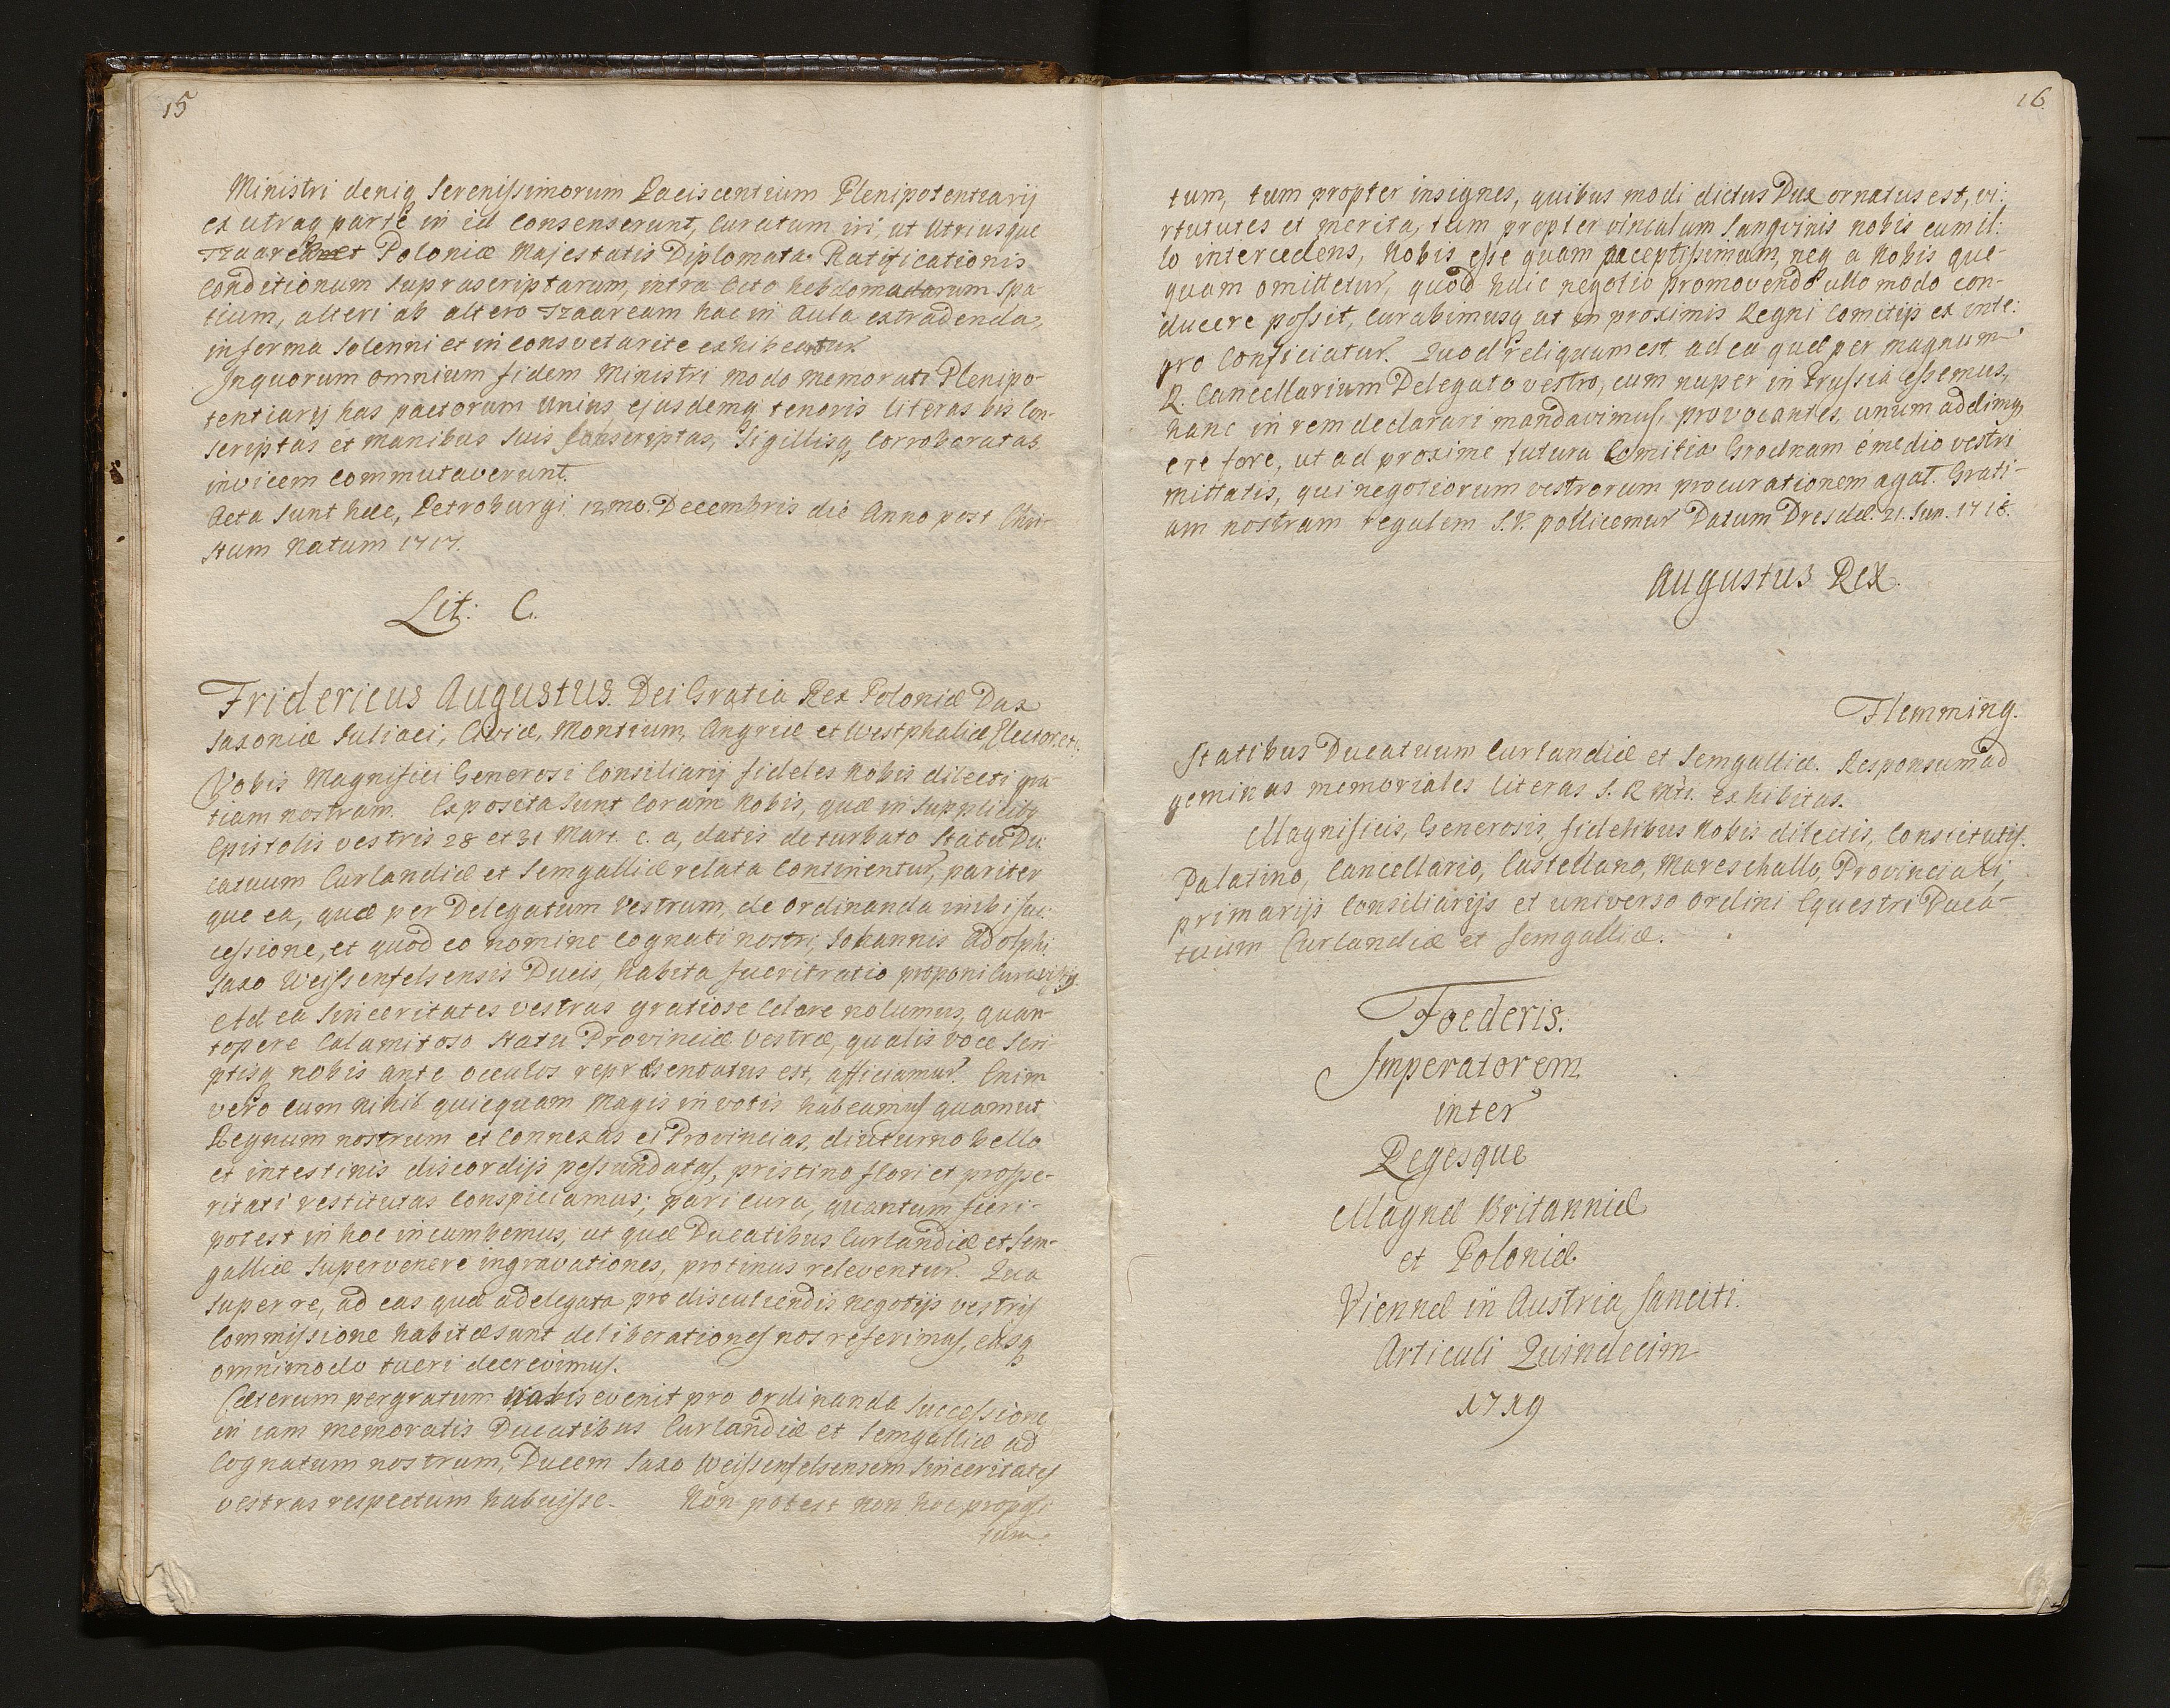 15
Ministri deniq Serenissimorum Paciscentium Plenipotentiarij
ex utraq parte in id Consenserunt, Curatum iri, ut Utriusque
et Poloniæ Majestatis Diplomata Ratificationis
Conditionum supra scriptarum, intra Octo hebdomadarum Spa-
tium, alteri ab altero Tzaaream hac in Aula extradenda,
in forma Solenni et in Consveta rite exhibeantur
Inquorum omnium fidem Ministri modo memorati Plenipo-
tentiarij has pactorum Unius ejusdemq tenoris literas bis Con-
scriptas et manibus suis subscriptas, Sigillisq Corroboratas
invicem Commutaverunt.
Acta sunt hæc, Petroburgi 12mo. Decembris die Anno post Chri-
stum Natum 1717.
Lit: C.
Fridericus Augustus. Dei Gratia Rex Poloniæ Dux
Saxoniæ Juliaci, Cliviæ, Montium, Angriæ et Westphaliæ, Elector. etc.
Vobis Magnifici Generosi Consiliarij fideles Nobis dilecti gra-
tiam nostram. Exposita sunt Coram Nobis, quæ in supplicibq
Epistolis vestris 28 et 31 Mart. c. a. datis de turbato Statu Du-
catuum Curlandiæ et Semgalliæ relata Continentur, pariter
que ea, quæ per Delegatum vestrum, de ordinanda inibi suc-
cessione, et quod eo nomine Cognati nostri, Johannis Adolphi
Saxo Weissenfelsensis Ducis, habita fuerit ratio proponi Curavistis.
Ad ea Sinceritates vestras gratiose Celare nolumus, quan-
topere Calamitoso Statu Provinciæ Vestræ, qualis voce scri-
ptisq nobis ante occulos repræsentatus est, afficiamur. Enim
vero cum nihil quicquam magis in votis habeamus quam ut
Regnum nostrum et Connexas ei Provincias, diuturno bello
et intestinis discordijs pessundatas, pristino flori et prospe-
ritati restitutas Conspiciamus; pari cura, quantum fieri-
potest in hoc incumbemus, ut quæ Ducatibus Curlandiæ et Sem-
galliæ Supervenere ingravationes, protinus releventur. Qua
super re, ad eas quæ a delegata pro discutiendis negotijs vestris
Commissione habitæ sunt deliberationes nos referimus, easq
omnimodo tueri decrevimus.
Cæterum pergratum Nobis evenit pro Ordinanda Successione
in iam memoratis Ducatibus Curlandiæ et Semgalliæ ad
Cognatum nostrum, Ducem Saxo Weissenfelsensem Sinceritates
vestras respectum habuisse. Non potest non hoc proposi
tum
16
tum, tum propter insignes, quibus modi dictus Dux ornatus est, vi:
rtututes et merita, tum propter vinculum Sangvinis nobis cum il:
lo intercedens, Nobis esse quam acceptissimum, neq a Nobis que-
quam omittetur, quod huic negotio promovendo ullo modo con-
ducere possit, Curabimusq ut in proximis Regni Comitijs ex inte:
gro Conficiatur. Quod reliquum est ad ea quæ per magnum
R. Cancellarium Delegato vestro, cum nuper in Prussia essemus,
hanc in rem declarari mandavimus, provocantes, unum adlimq
ere fore, ut ad proxime futura Comitia Grodnam e medio vestri
mittatis, qui negotiorum vestrorum procurationem agat. Grati-
am nostram regalem S.V. pollicemur Datum Dresdæ. 21. Jun. 1718.
Augustus Rex.
Flemming.
Statibus Ducatuum Curlandiæ et Semgalliæ. Responsum ad
geminas memoriales literas S. R Mti. exhibitas.
Magnificis, Generosis, fidelibus Nobis dilectis, Constitutis.
Palatino, Cancellario, Castellano, Mareschallo, Provinciali,
primarijs Consiliarijs et universo Ordini Equestri Duca-
tuum Curlandiæ et Semgalliæ.
Foederis.
Imperatorem
inter
Regesque
Magnæ Britanniæ
et Poloniæ
Viennæ in Austria sanciti.
Articuli Quindecim
1719